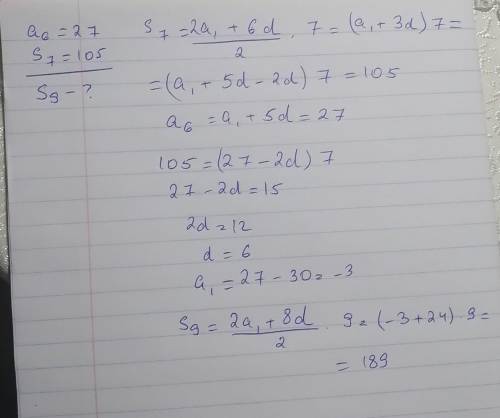 a₆ = 27
S₇ = 105
S₉ - ?
S₇ = (2a₁ + 6d)/2 · 7 = (a₁ + 3d) 7 =
= (a₁ + 5d - 2d) 7 = 105
a₆ = a₁ + 5d = 27
105 = (27 - 2d) 7
27 - 2d = 15
2d = 12
d = 6
a₁ = 27 - 30 = -3
S₉ = (2a₁ + 8d)/2 · 9 = (-3 + 24) 9 =
= 189